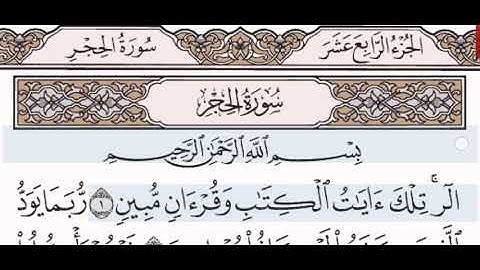 سُورَةُ الحِجْرِ
الجُزْءُ الرَّابِعَ عَشَرَ
سُورَةُ الحِجْرِ
بِسْمِ ٱللَّهِ ٱلرَّحْمَٰنِ ٱلرَّحِيمِ
الٓرۚ تِلْكَ ءَايَٰتُ ٱلْكِتَٰبِ وَقُرْءَانٖ مُّبِينٖ ۝١ رُّبَمَا يَوَدُّ